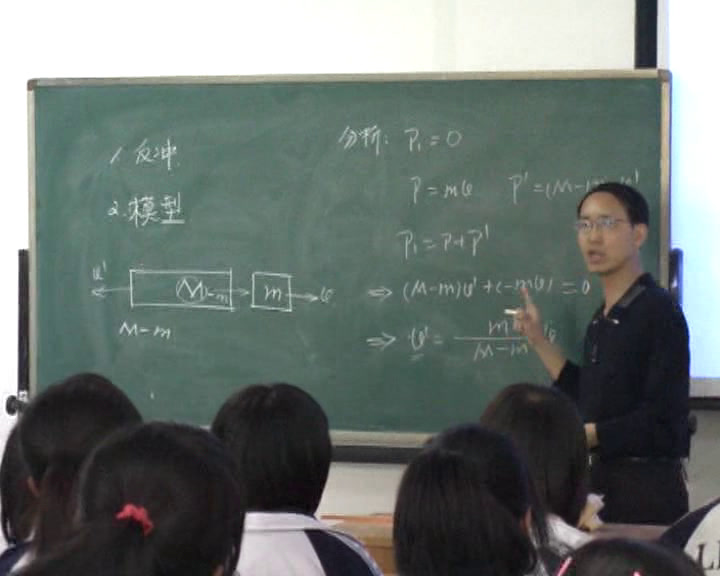 1. 反冲.
2. 模型
v' M-m m v
M-m
分析: P₁=0
P=mv P'=(M-m)v'
P₁=P+P'
⇒ (M-m)v'+(-mv)=0
⇒ v'= m/(M-m) v